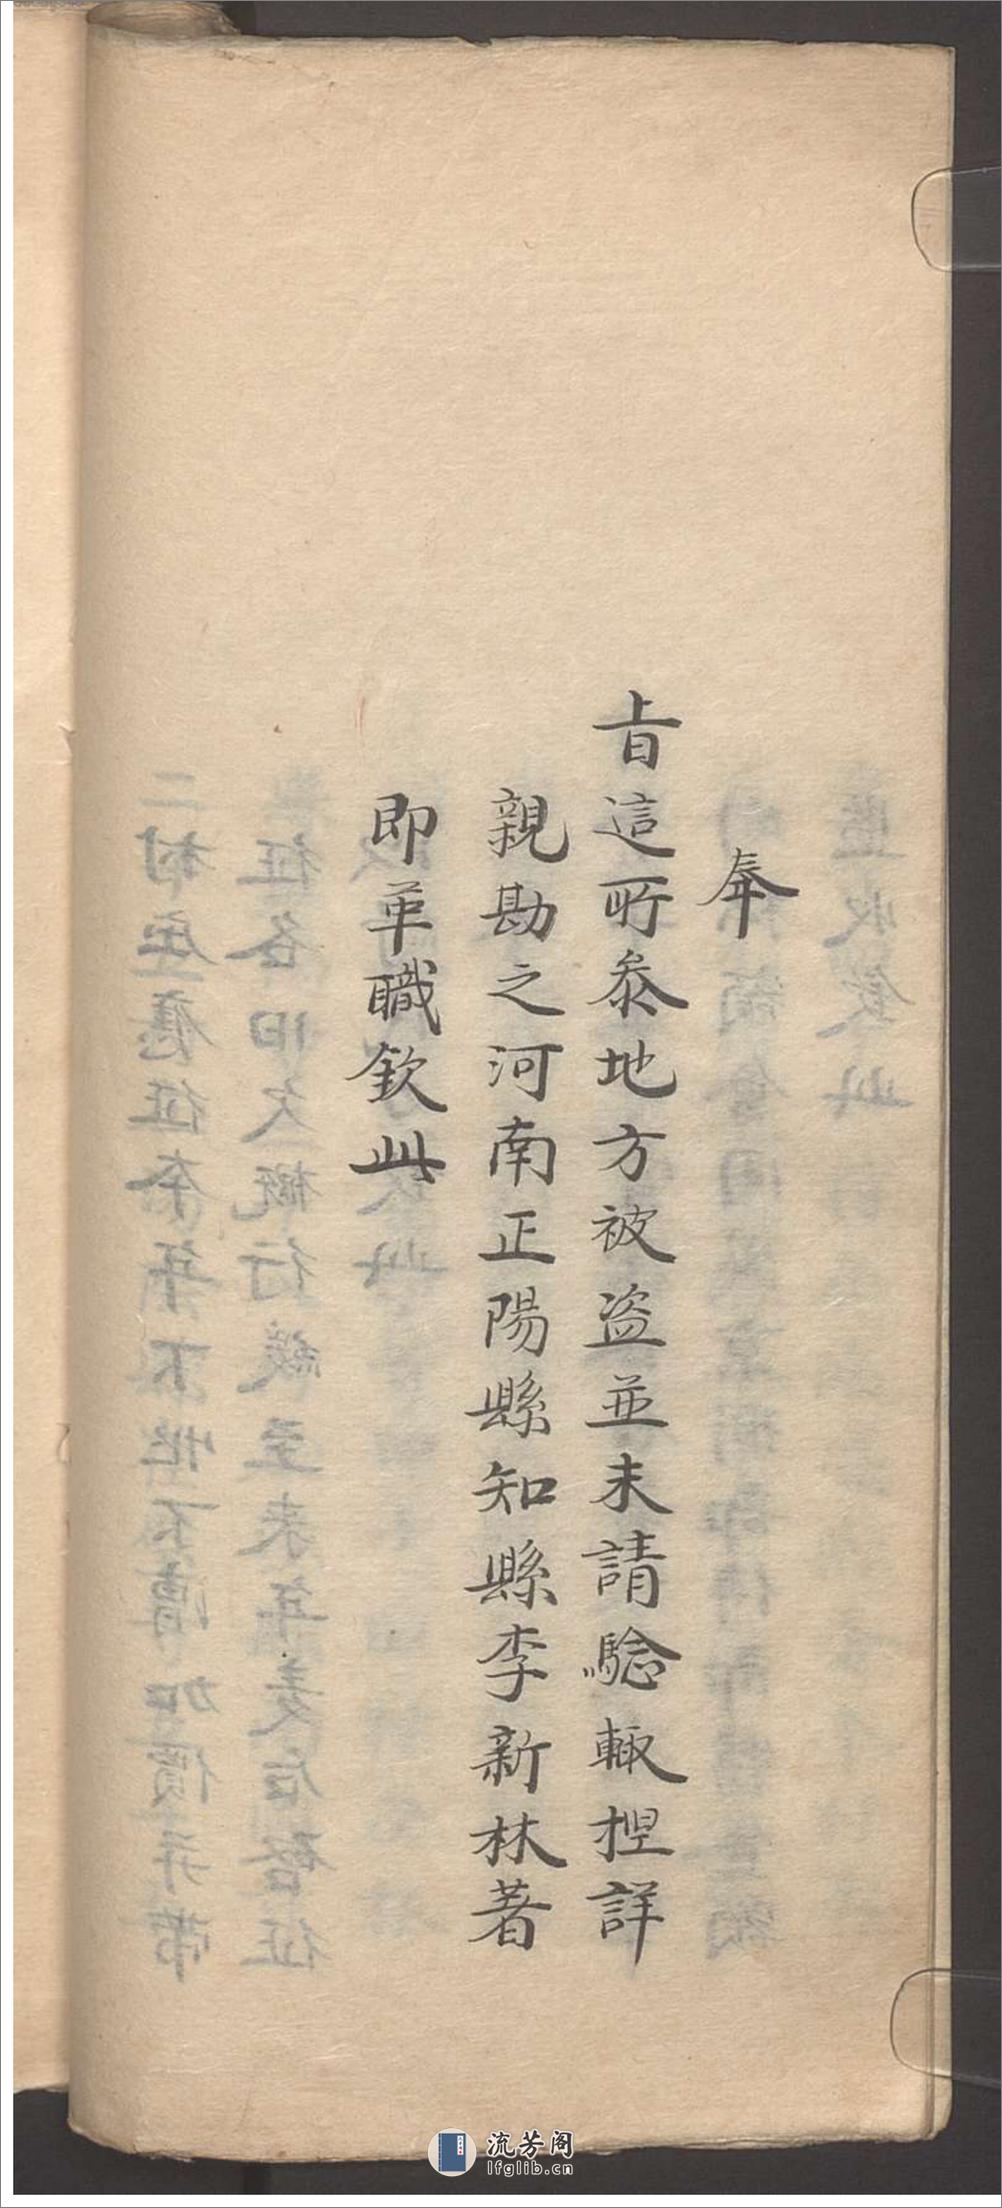 奉
旨這所叅地方被盗並未請騐輙捏詳
親勘之河南正陽縣知縣李新林著
即革職欽此
流芳阁
lfglib.cn